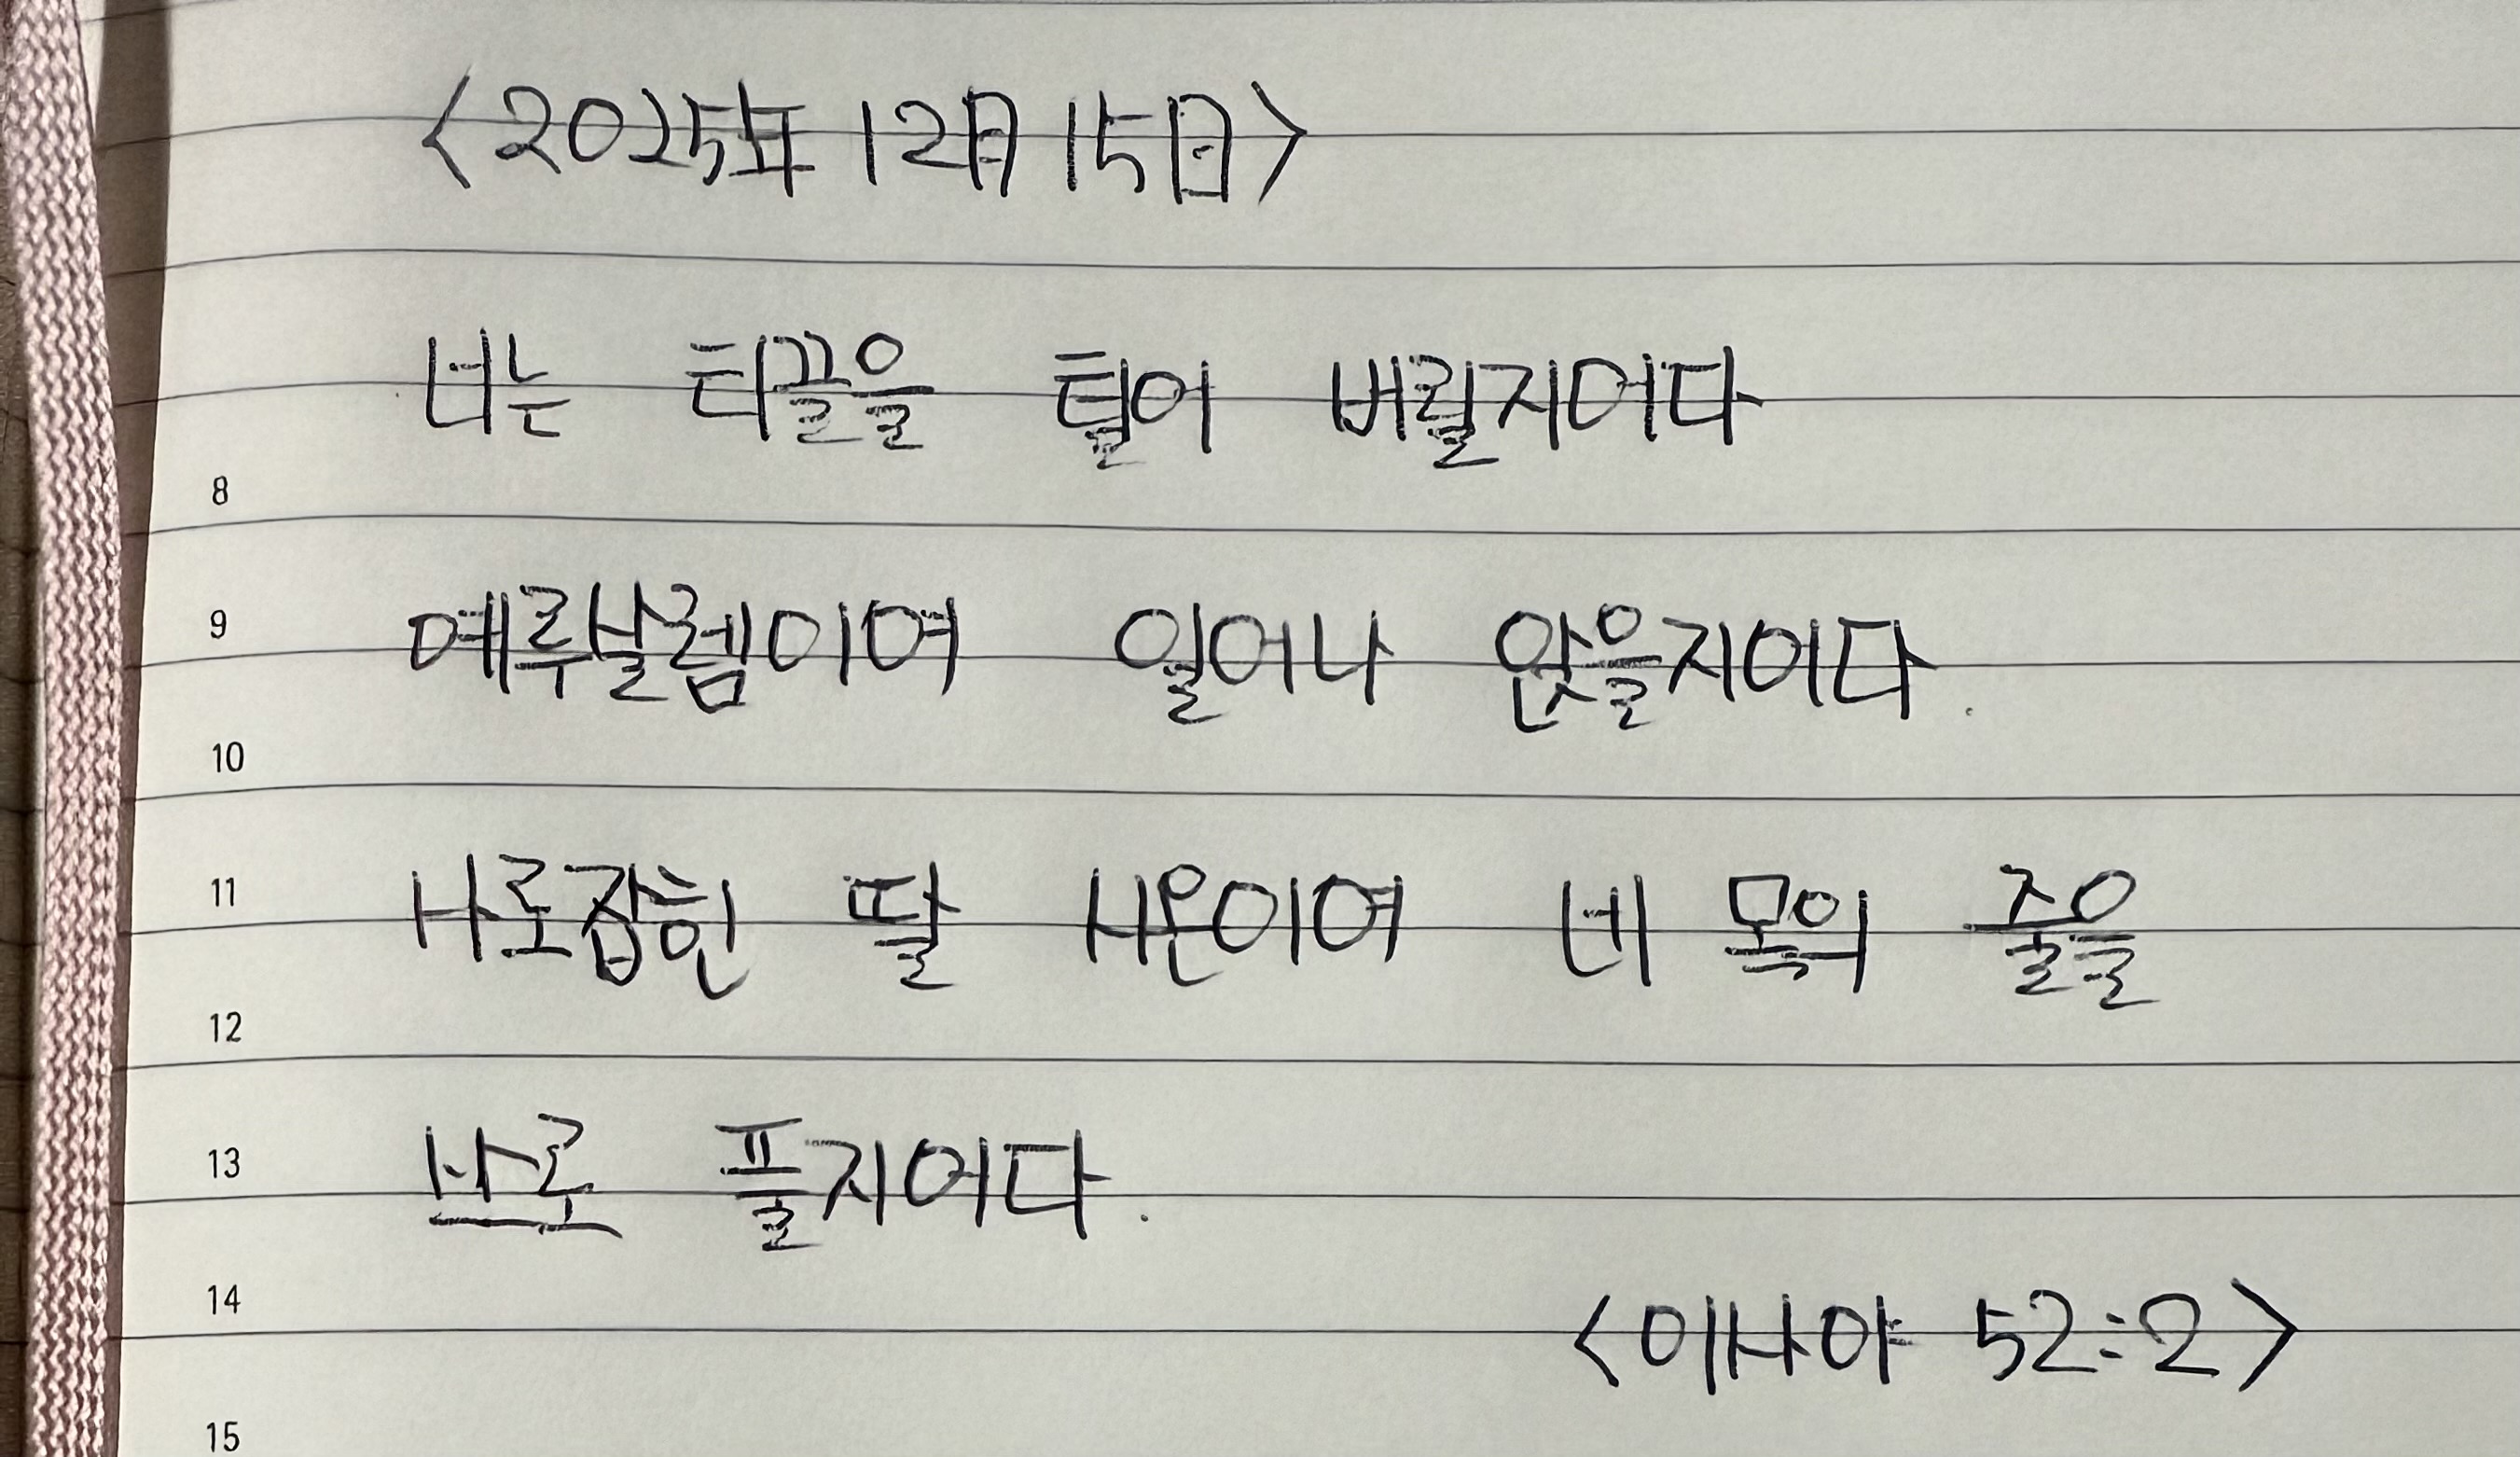 <2025年 12月 15日>
너는 티끌을 털어 버릴지어다
8
예루살렘이여 일어나 앉을지어다.
9
10
사로잡힌 딸 시온이여 네 목의 줄을
11
12
스스로 풀지어다.
13
<이사야 52:2>
14
15